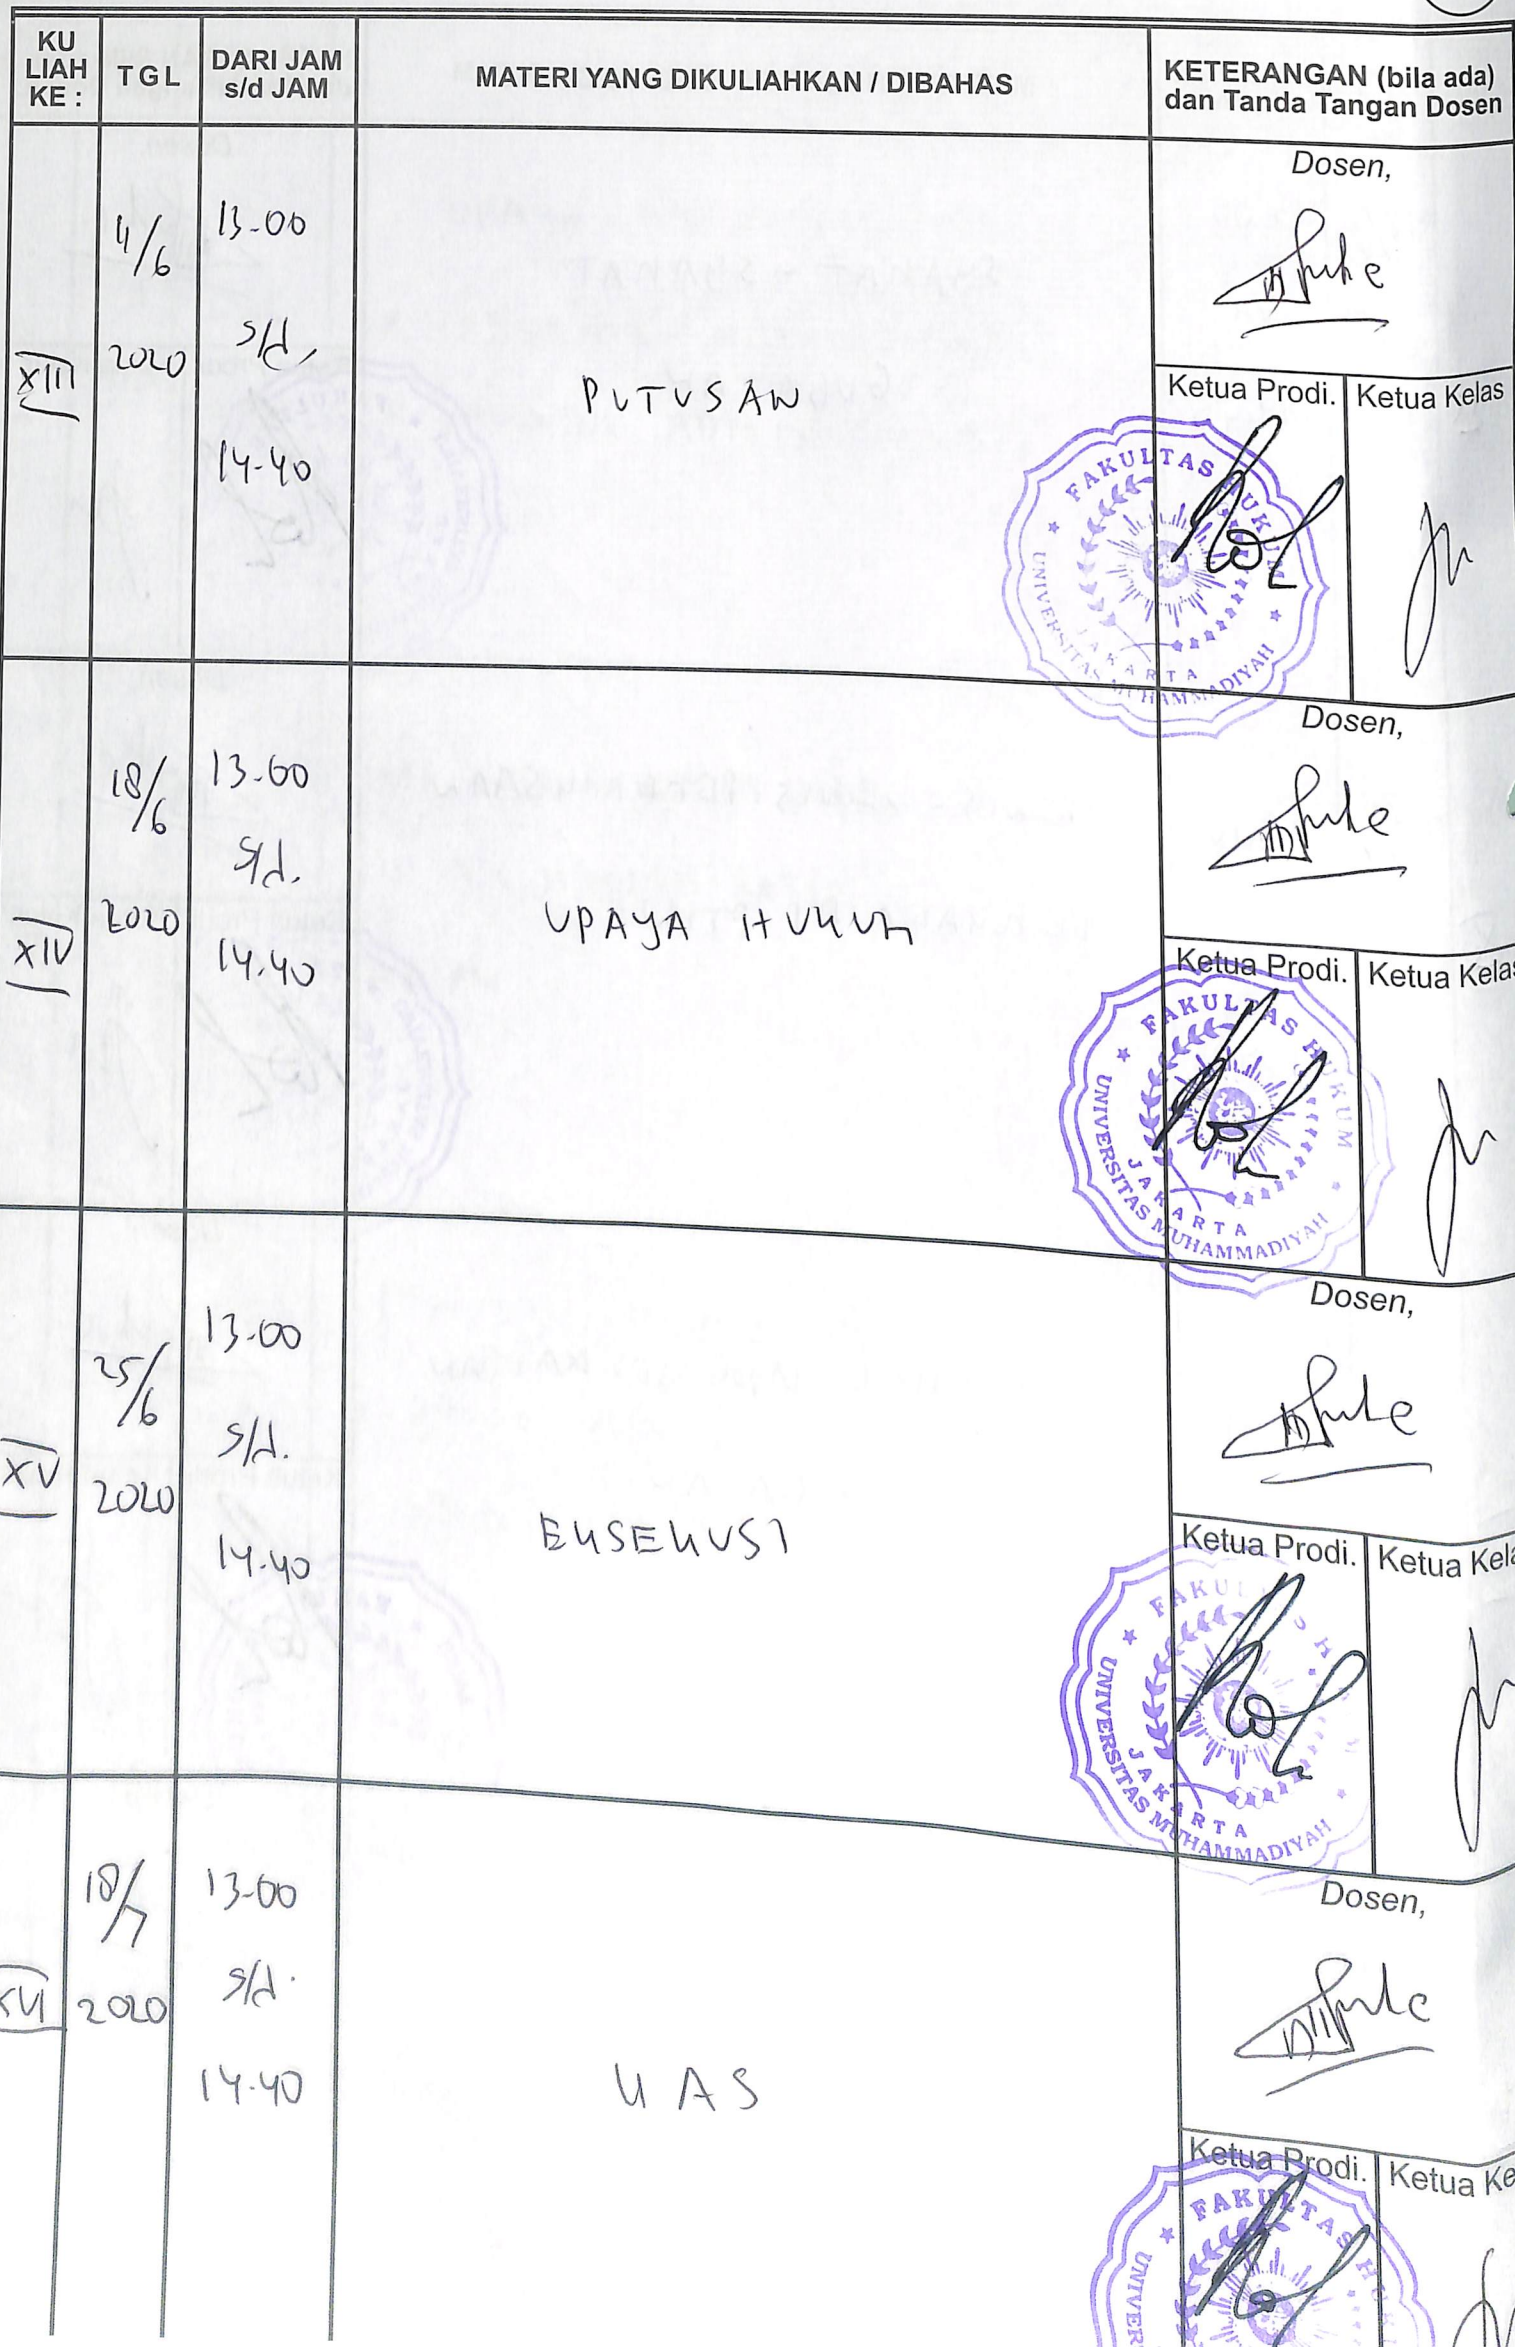 KU
LIAH
KE :
TGL
DARI JAM
s/d JAM
MATERI YANG DIKULIAHKAN / DIBAHAS
KETERANGAN (bila ada)
dan Tanda Tangan Dosen
XIII
4/6
2020
13.00
s/d.
14.40
PUTUSAN
Dosen,
Ketua Prodi.
Ketua Kelas
FAKULTAS HUKUM
UNIVERSITAS MUHAMMADIYAH
JAKARTA
XIV
18/6
2020
13.00
s/d.
14.40
UPAYA HUKUM
Dosen,
Ketua Prodi.
Ketua Kelas
FAKULTAS HUKUM
UNIVERSITAS MUHAMMADIYAH
JAKARTA
XV
25/6
2020
13.00
s/d.
14.40
EKSEKUSI
Dosen,
Ketua Prodi.
Ketua Kela
FAKUL U H
UNIVERSITAS MUHAMMADIYAH
JAKARTA
XVI
18/7
2020
13.00
s/d.
14.40
UAS
Dosen,
Ketua Prodi.
Ketua Ke
FAKULTAS HUK
UNIVER